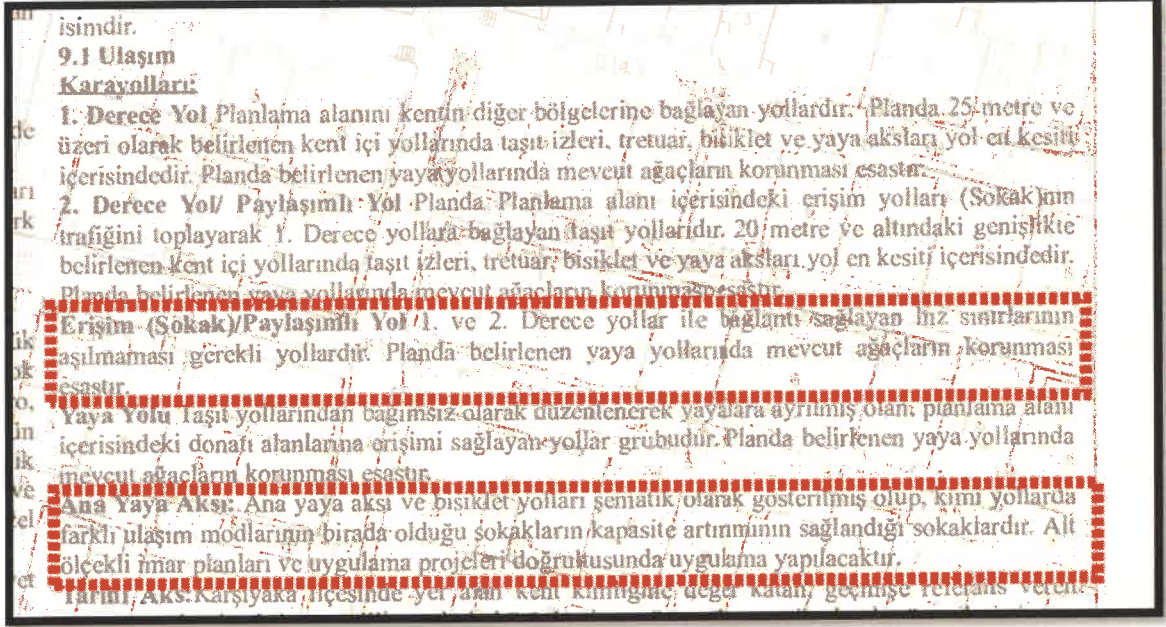 isimdir.
9.1 Ulaşım
Karayolları:
1. Derece Yol Planlama alanını kentin diğer bölgelerine bağlayan yollardır. Planda 25 metre ve
üzeri olarak belirlenen kent içi yollarında taşıt izleri, tretuar, bisiklet ve yaya aksları yol en kesiti
içerisindedir. Planda belirlenen yaya yollarında mevcut ağaçların korunması esastır.
2. Derece Yol/ Paylaşımlı Yol Planda Planlama alanı içerisindeki erişim yolları (Sokak)nın
trafiğini toplayarak 1. Derece yollara bağlayan taşıt yollarıdır. 20 metre ve altındaki genişlikte
belirlenen kent içi yollarında taşıt izleri, tretuar, bisiklet ve yaya aksları yol en kesiti içerisindedir.
Planda belirlenen yaya yollarında mevcut ağaçların korunması esastır.
Erişim (Sokak)/Paylaşımlı Yol 1. ve 2. Derece yollar ile bağlantı sağlayan hız sınırlarının
aşılmaması gerekli yollardır. Planda belirlenen yaya yollarında mevcut ağaçların korunması
esastır.
Yaya Yolu Taşıt yollarından bağımsız olarak düzenlenerek yayalara ayrılmış olan, planlama alanı
içerisindeki donatı alanlarına erişimi sağlayan yollar grubudur. Planda belirlenen yaya yollarında
mevcut ağaçların korunması esastır.
Ana Yaya Aksı: Ana yaya aksı ve bisiklet yolları şematik olarak gösterilmiş olup, kimi yollarda
farklı ulaşım modlarının birada olduğu sokakların kapasite artırımının sağlandığı sokaklardır. Alt
ölçekli imar planları ve uygulama projeleri doğrultusunda uygulama yapılacaktır.
Tarihi Aks: Karşıyaka ilçesinde yer alan kent kimliğine değer katan, geçmişe referans veren